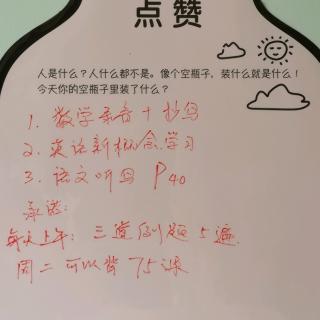 点赞
人是什么？人什么都不是。像个空瓶子，装什么就是什么！
今天你的空瓶子里装了什么？
1. 数学录音+抄写
2. 英语新概念学习
3. 语文听写 P40
承诺：
每天上午：三道例题5遍.
周二可以背75课